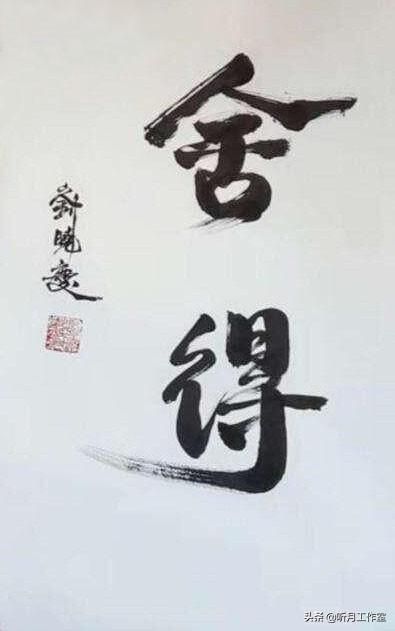 舍得
劉曉慶
头条 @听月工作室